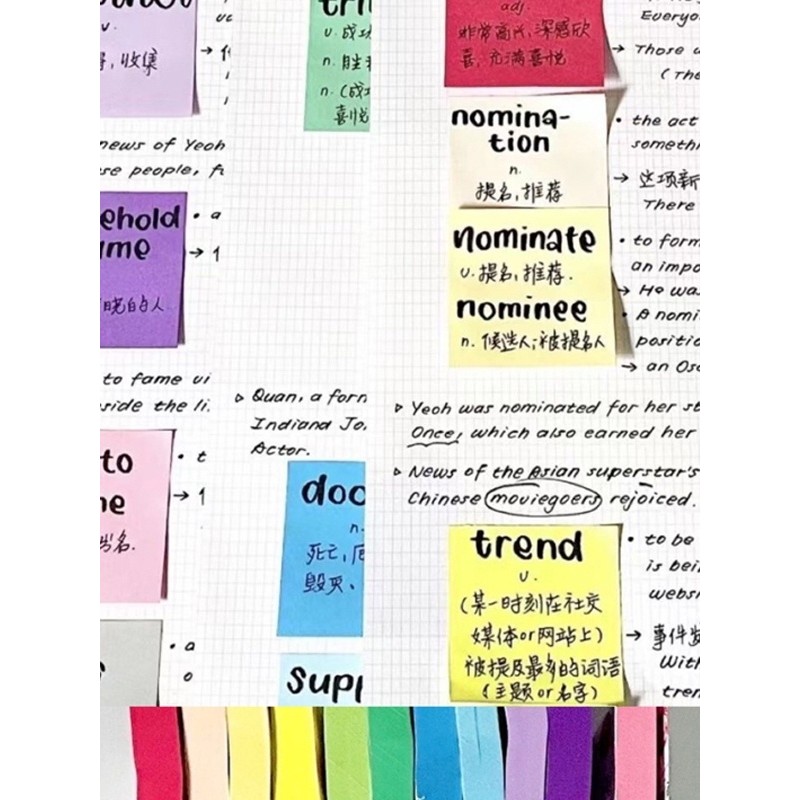 v.
收集
news of Yeoh
se people, f
ehold
me
的人
• a
→ 1
to fame vi
side the li.
to
ne
• t
→ 1
• a
o
v. 成功
n. 胜
n. (成功
喜悦
▷ Quan, a forn
Indiana Jo.
Actor.
doo
n.
死亡,
毁灭、
supp
adj.
非常高兴,深感欣
喜,充满喜悦
Everyo
→ Those
(The
nomina-
tion
n.
提名,推荐
• the act
somethi
→ 这项新
There
nominate
v. 提名,推荐.
nominee
n. 候选人;被提名人
• to form
an impo
→ He wa
• A nomi
positio
→ an Osc
▷ Yeoh was nominated for her st
Once, which also earned her
▷ News of the Asian superstar's
Chinese moviegoers rejoiced.
trend
v.
(某一时刻在社交
媒体or网站上)
被提及最多的词语
(主题or名字)
• to be
is bei
websi
→ 事件发
With
tren